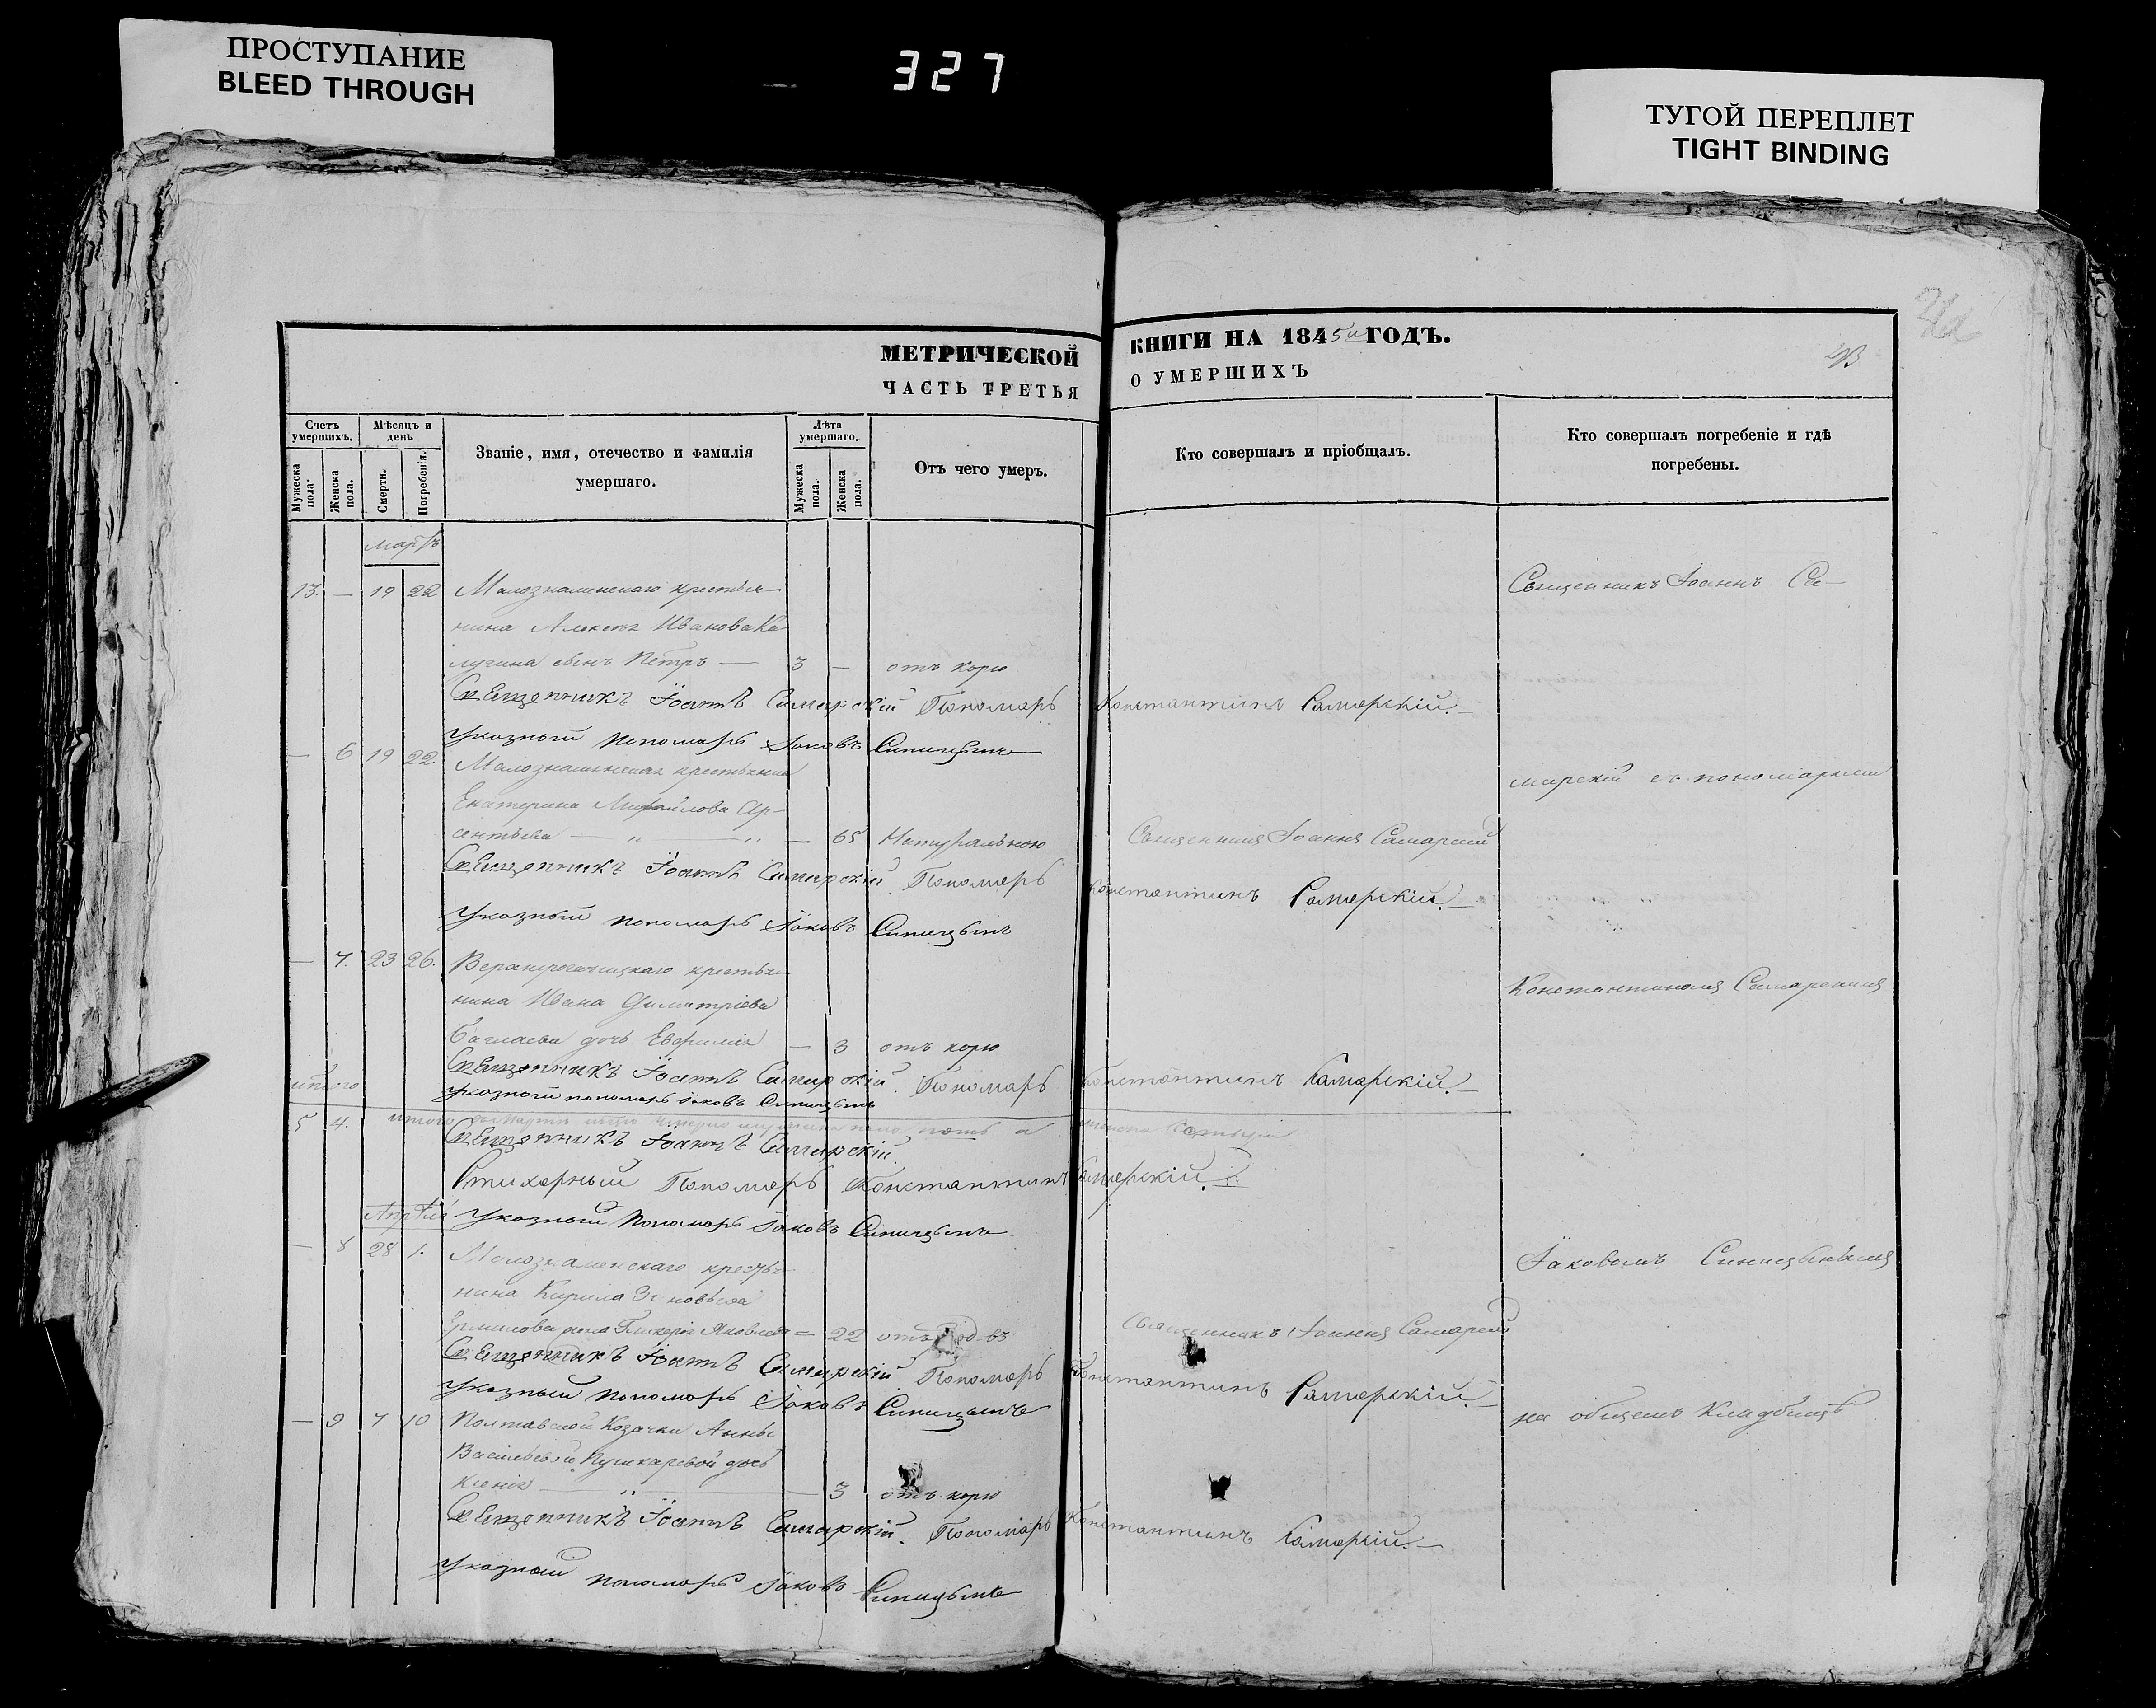 ПРОСТУПАНИЕ
BLEED THROUGH
327
ТУГОЙ ПЕРЕПЛЕТ
TIGHT BINDING
МЕТРИЧЕСКОЙ КНИГИ НА 1845й ГОДЪ.
ЧАСТЬ ТРЕТЬЯ О УМЕРШИХЪ
Счетъ умершихъ.
Мужеска пола.
Женска пола.
Мѣсяцъ и день
Смерти.
Погребенія.
Званіе, имя, отечество и фамилія
умершаго.
Лѣта умершаго.
Мужеска пола.
Женска пола.
Отъ чего умеръ.
Кто совершалъ и пріобщалъ.
Кто совершалъ погребеніе и гдѣ
погребены.
мартъ
13. — 19 22 Малознаменскаго крестья- Священникъ Іоаннъ Са-
нина Иванова Ка
лугина сынъ Петръ — 3 — отъ корю
Священникъ Іоаннъ Самарскій Пономарь Константинъ Самарскій.
Указный пономарь Іаковъ Синицынъ
— 6 19 22. Малознаменская крестьянка марскій съ пономарями
Екатерина Михайлова Ар-
сентьева — „ — „ — 65 Натуральною Священникъ Іоаннъ Самарскій
Священникъ Іоаннъ Самарскій Пономарь Константинъ Самарскій.
Указный пономарь Іаковъ Синицынъ
— 7. 23 26. Верхнерогачицкаго крестья- Константиномъ Самарскимъ
нина Ивана Димитріева
дочь Евфимія — 3 отъ корю
Священникъ Іоаннъ Самарскій. Пономарь Константинъ Самарскій.
Указный пономарь Іаковъ Синицынъ
итого
5 4. итого
Священникъ Іоаннъ Самарскій.
Стихарный Пономарь Константинъ Самарскій.
Апрѣль Указный Пономарь Іаковъ Синицынъ
— 8 28 1. Малознаменскаго крестья- Іаковомъ Синицынымъ
нина Кирила Зиновьева
Ермилова жена Гликерія Яковлева — 22 отъ Священникъ Іоаннъ Самарскій
Священникъ Іоаннъ Самарскій Пономарь Константинъ Самарскій.
Указный пономарь Іаковъ Синицынъ
— 9 7 10 Полтавской Козачки Анны на общемъ кладбищѣ
Васильевой Пушкаревой дочь
Ксенія — „ — 3 отъ корю
Священникъ Іоаннъ Самарскій. Пономарь Константинъ Самарскій.
Указный пономарь Іаковъ Синицынъ